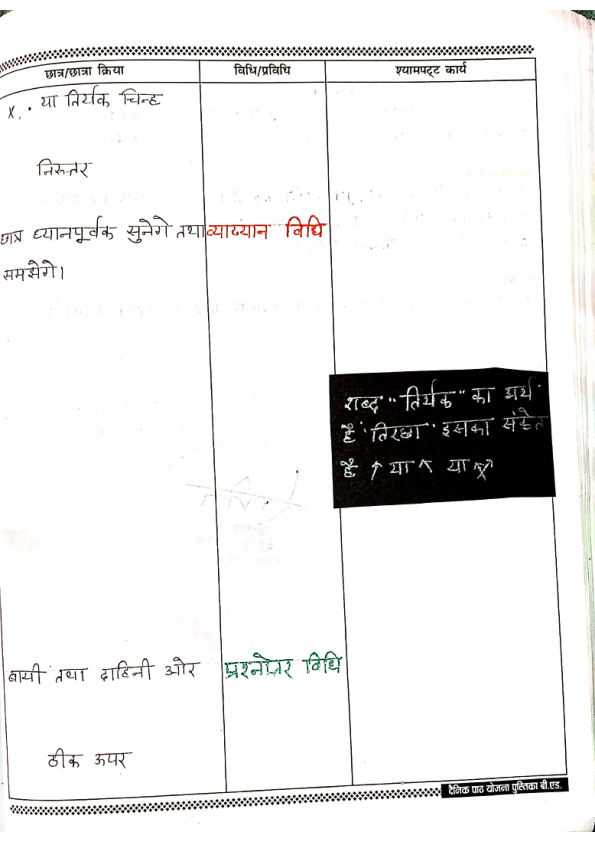 छात्र/छात्रा क्रिया विधि/प्रविधि श्यामपट्ट कार्य
x, • या तिर्यक चिन्ह
निरुत्तर
छात्र ध्यानपूर्वक सुनेगे तथा व्याख्यान विधि
समझेगे।
शब्द "तिर्यक" का अर्थ
है 'तिरछा' इसका संकेत
है ↑ या ↖ या
बायी तथा दाहिनी ओर प्रश्नोत्तर विधि
ठीक ऊपर
दैनिक पाठ योजना पुस्तिका बी.एड.